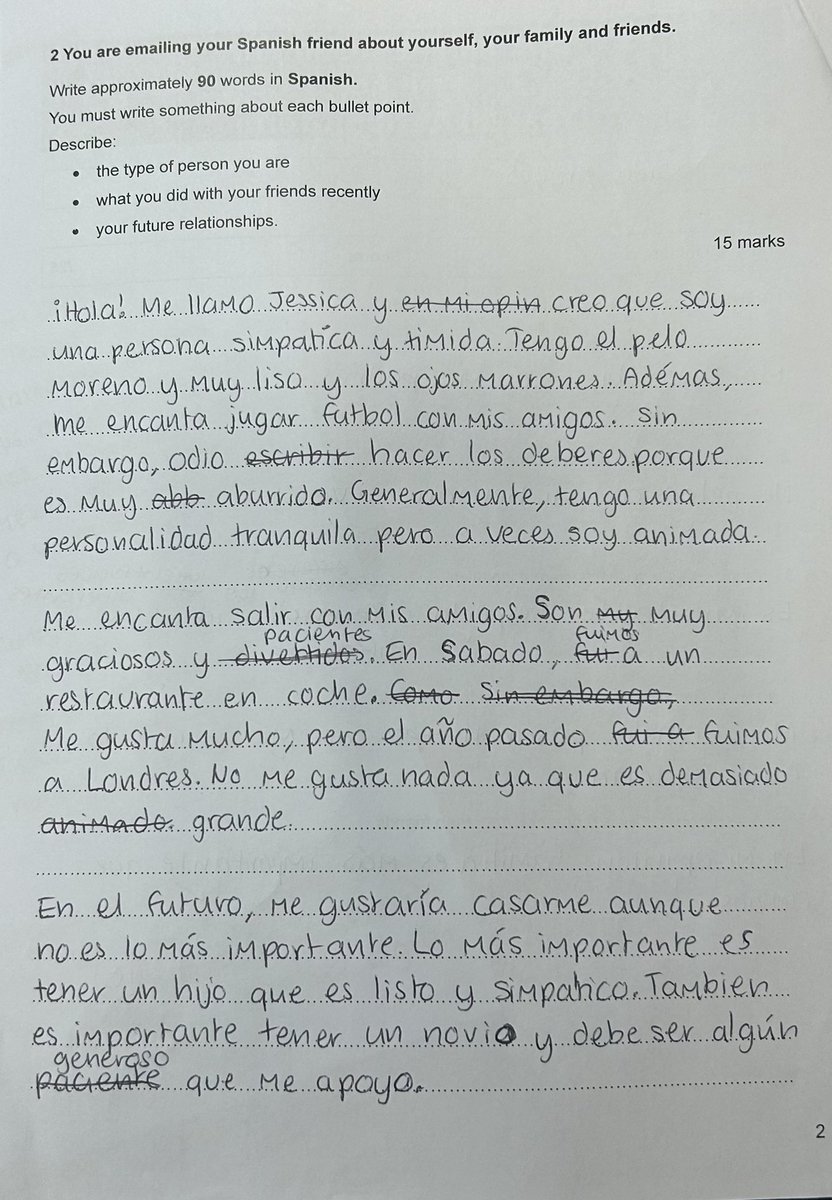 2 You are emailing your Spanish friend about yourself, your family and friends.
Write approximately 90 words in Spanish.
You must write something about each bullet point.
Describe:
• the type of person you are
• what you did with your friends recently
• your future relationships.
15 marks
¡Hola! Me llamo Jessica y en mi opin creo que soy
una persona simpatíca y timida. Tengo el pelo
moreno y muy liso y los ojos marrones. Adémas,
me encanta jugar futbol con mis amigos. Sin
embargo, odio escribir hacer los deberes porque
es muy abb aburrido. Generalmente, tengo una
personalidad tranquila pero a veces soy animada.
Me encanta salir con mis amigos. Son my muy
pacientes fuimos
graciosos y divertidos. En Sabado, fui a un
restaurante en coche. Como Sin embargo,
Me gusta mucho, pero el año pasado fui a fuimos
a Londres. No me gusta nada ya que es demasiado
animado. grande.
En el futuro, me gustaría casarme aunque
no es lo más importante. Lo más importante es
tener un hijo que es listo y simpatico. Tambien
es importante tener un novio y debe ser algún
generoso
paciente que me apoyo.
2